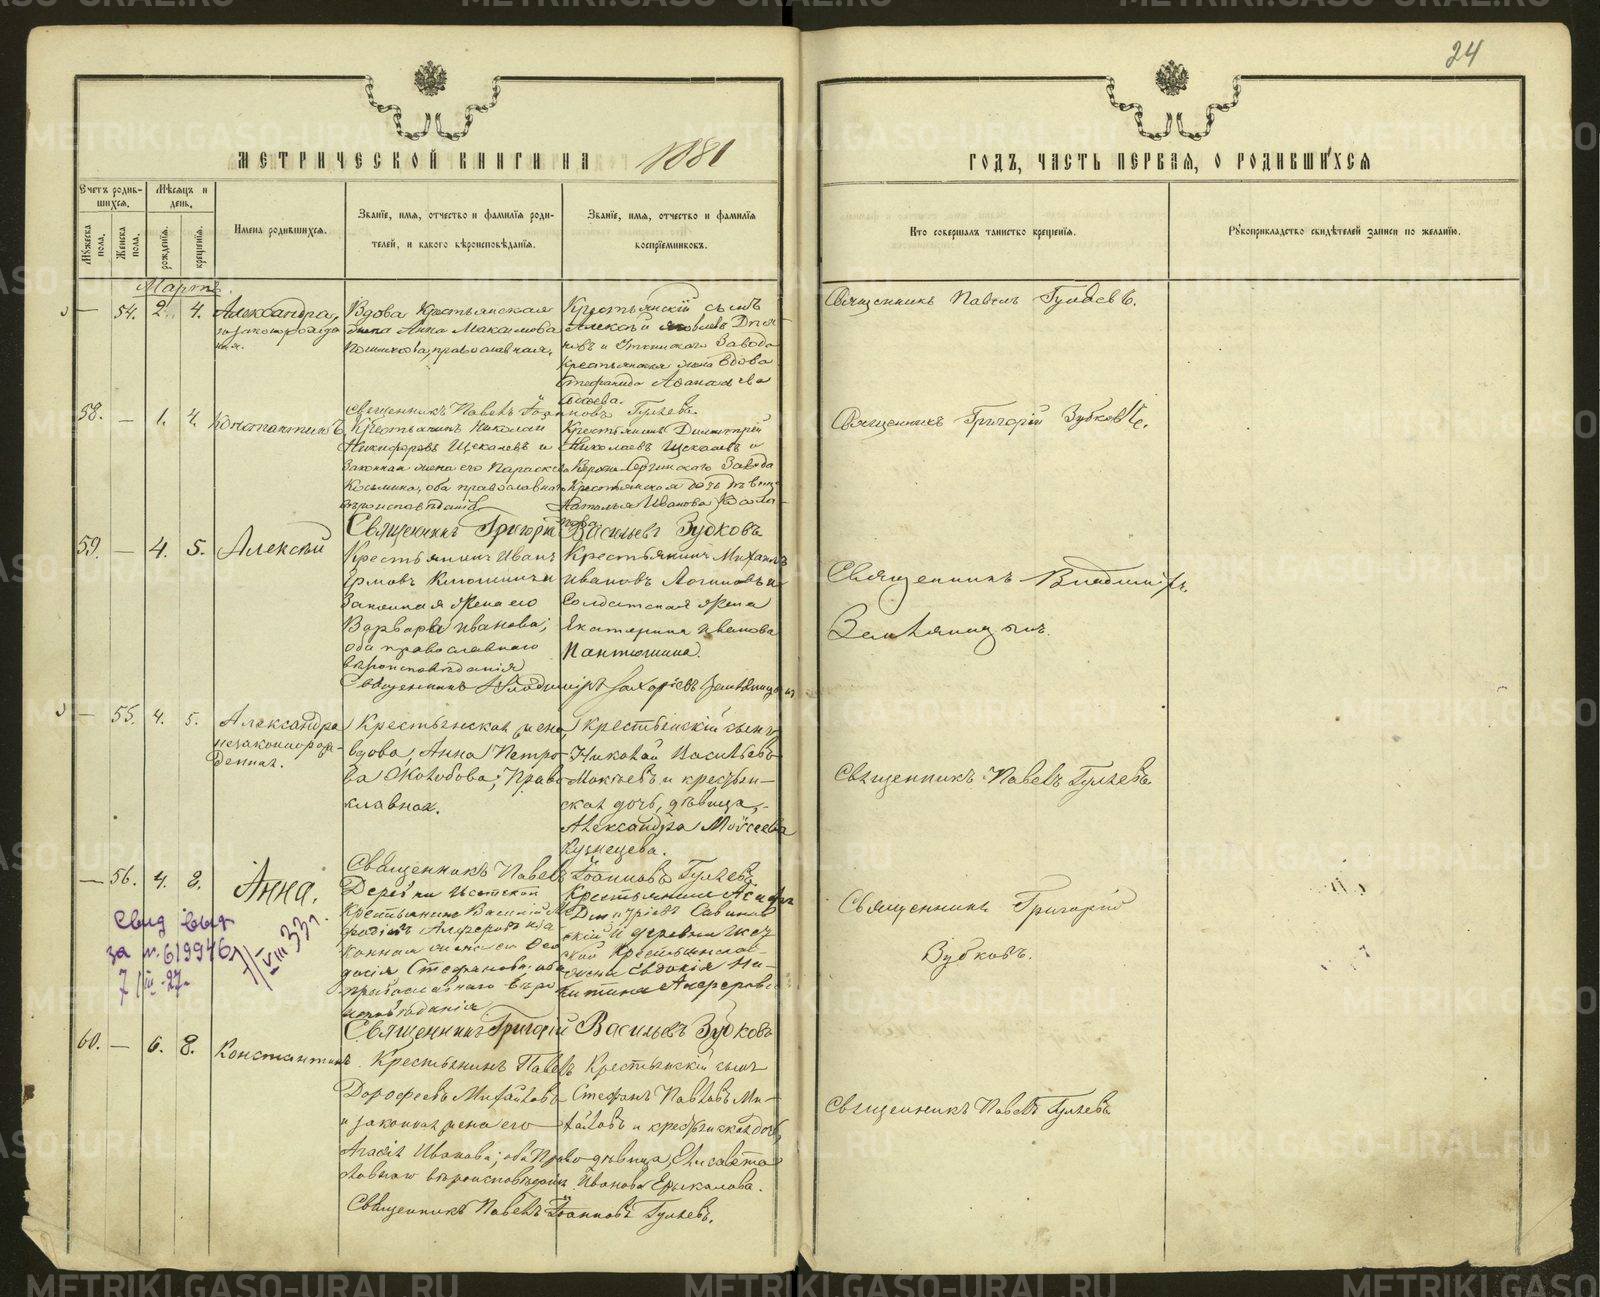 24
МЕТРИЧЕСКОЙ КНИГИ НА 1881
ГОДЪ, ЧАСТЬ ПЕРВАЯ, О РОДИВШИХСЯ
Счетъ родив-
шихся.
Мѣсяцъ и
день.
Мужеска пола.
Женска пола.
рожденія.
крещенія.
Имена родившихся.
Званіе, имя, отчество и фамилія роди-
телей, и какого вѣроисповѣданія.
Званіе, имя, отчество и фамилія
воспріемниковъ.
Кто совершалъ таинство крещенія.
Рукоприкладство свидѣтелей записи по желанію.
Мартъ.
— 54. 2. 4. Александра,
Вдова Крестьянская
жена Анна Максимова
православная.
Крестьянскій сынъ
Алексѣй Яковлевъ
и Уткинскаго Завода
Крестьянская жена вдова
Стефанида Аѳанасьева
Священникъ Павелъ Гуляевъ.
Священникъ Павелъ Іоанновъ Гуляевъ.
58. — 1. 4. Константинъ
Крестьянинъ Николай
Никифоровъ Щекалевъ и
законная жена его Параскева
Козьмина, оба православнаго
вѣроисповѣданія
Крестьянинъ Димитрій
Николаевъ Щекалевъ и
Сергинскаго Завода
Крестьянская дочь дѣвица
Наталья Иванова
Священникъ Григорій Зубковъ.
Священникъ Григорій Васильевъ Зубковъ
59. — 4. 5. Алексѣй
Крестьянинъ Иванъ
Ермовъ
Законная жена его
Варвара Иванова;
оба православнаго
вѣроисповѣданія
Крестьянинъ Михаилъ
Ивановъ Логиновъ и
Солдатская жена
Екатерина Иванова
Пантюшина.
Священникъ Владиміръ
Земляницынъ.
Священникъ Владиміръ Захаріевъ Земляницынъ
— 55. 4. 5. Александра
незаконнорож-
денная.
Крестьянская жена,
вдова, Анна Петро-
ва Околобова; Право-
славная.
Крестьянскій сынъ
Николай Васильевъ
Мокѣевъ и крестьян-
ская дочь, дѣвица,
Александра Моисеева
Кузнецова.
Священникъ Павелъ Гуляевъ
Священникъ Павелъ Іоанновъ Гуляевъ
— 56. 4. 8. Анна.
Деревни Исетской
Крестьянинъ Василій
Алферовъ и за-
конная жена его Ѳео-
досія Стефанова, оба
православнаго вѣро-
исповѣданія
Крестьянинъ
Димитріевъ Савинов-
скій и деревни Исет-
ской Крестьянская
жена Евдокія Ни-
китина Алферова
Священникъ Григорій
Зубковъ.
Свид выд
за №619946
7/III-27.
1/VIII 33 г.
Священникъ Григорій Васильевъ Зубковъ
60. — 6. 8. Константинъ.
Крестьянинъ Павелъ
Дорофеевъ Михайловъ
и законная жена его
Агафія Иванова; оба Право-
славнаго вѣроисповѣданія.
Крестьянскій сынъ
Стефанъ Павловъ Ми-
хайловъ и крестьянская дочь,
дѣвица, Елисавета
Иванова Ерыкалова.
Священникъ Павелъ Гуляевъ
Священникъ Павелъ Іоанновъ Гуляевъ.
METRIKI.GASO-URAL.RU